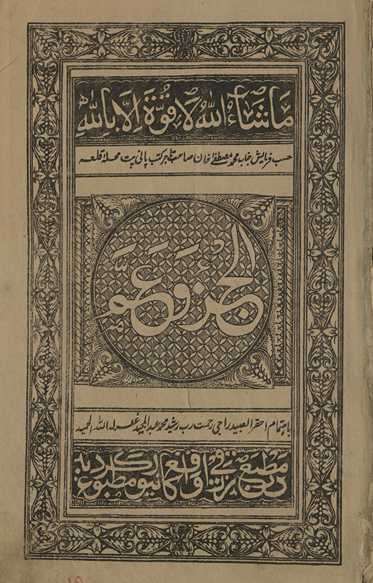 ما شاء الله لا قوة الا بالله
حسب فرمایش جناب محمد مصطفے خان صاحب تاجر کتب پانی پت محلہ قلعہ
الجزو عم
باہتمام احقر العبید راجی رحمت رب رشید محمد عبد المجید غفر لہ اللہ الحمید
در مطبع واقع کانپور مطبوع گردید